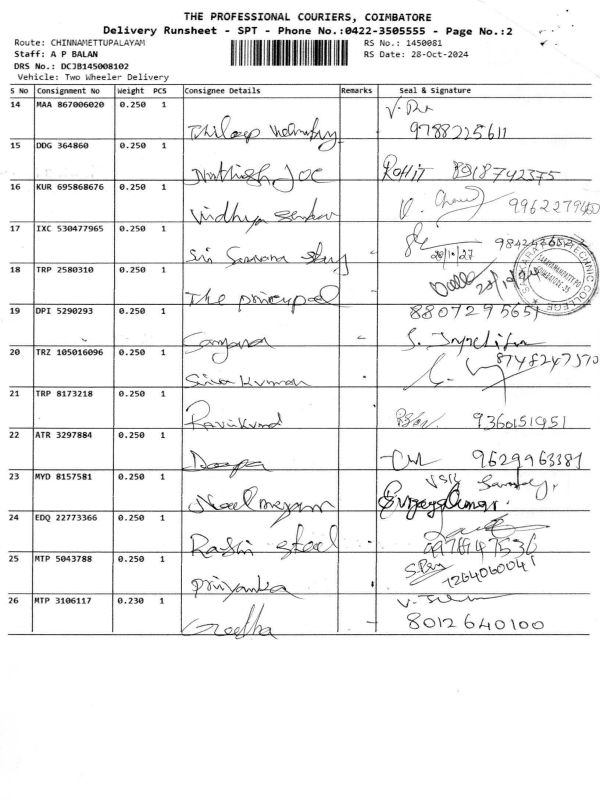 THE PROFESSIONAL COURIERS, COIMBATORE
Delivery Runsheet - SPT - Phone No.:0422-3505555 - Page No.:2
Route: CHINNAMETTUPALAYAM RS No.: 1450081
Staff: A P BALAN RS Date: 28-Oct-2024
DRS No.: DCJB145008102
Vehicle: Two Wheeler Delivery
S No Consignment No Weight PCS Consignee Details Remarks Seal & Signature
14 MAA 867006020 0.250 1
9788225611
15 DDG 364860 0.250 1
ROHIT 8918742375
16 KUR 695868676 0.250 1
Vidhya 9962279450
17 IXC 530477965 0.250 1
Sri Saravana
18 TRP 2580310 0.250 1
The principal
19 DPI 5290293 0.250 1 8807295651
Sanjana
20 TRZ 105016096 0.250 1 8748247370
Siva Kumar
21 TRP 8173218 0.250 1
Ravikund 9360151951
22 ATR 3297884 0.250 1
Deepa 9629963381
23 MYD 8157581 0.250 1
Neelmegam
24 EDQ 22773366 0.250 1
Rashi steel
25 MTP 5043788 0.250 1
Priyanka 7264060041
26 MTP 3106117 0.230 1
Geetha 8012640100